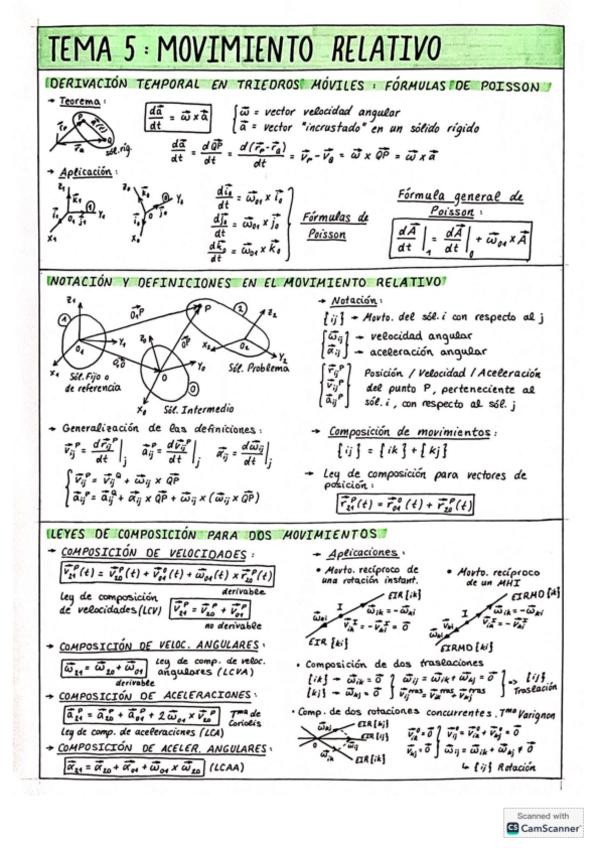 TEMA 5: MOVIMIENTO RELATIVO
DERIVACIÓN TEMPORAL EN TRIEDROS MÓVILES: FÓRMULAS DE POISSON
→ Teorema:
dā/dt = ω̄ × ā
ω̄ = vector velocidad angular
ā = vector "incrustado" en un sólido rígido
sól. rig.
dā/dt = dQP/dt = d(r̄P - r̄Q)/dt = v̄P - v̄Q = ω̄ × QP = ω̄ × ā
→ Aplicación:
dī₀/dt = ω̄₀₁ × ī₀
dj̄₀/dt = ω̄₀₁ × j̄₀
dk̄₀/dt = ω̄₀₁ × k̄₀
Fórmulas de Poisson
Fórmula general de
Poisson:
dĀ/dt|₁ = dĀ/dt|₀ + ω̄₀₁ × Ā
NOTACIÓN Y DEFINICIONES EN EL MOVIMIENTO RELATIVO
Sól. Fijo o
de referencia
Sól. Intermedio
Sól. Problema
→ Notación:
{ij} → Movto. del sól. i con respecto al j
ω̄ij → velocidad angular
ᾱij → aceleración angular
r̄ijᴾ
v̄ijᴾ
āijᴾ
Posición / Velocidad / Aceleración
del punto P, perteneciente al
sól. i, con respecto al sól. j
→ Generalización de las definiciones:
v̄ijᴾ = dr̄ijᴾ/dt|j āijᴾ = dv̄ijᴾ/dt|j ᾱij = dω̄ij/dt|j
v̄ijᴾ = v̄ijQ + ω̄ij × QP
āijᴾ = āijQ + ᾱij × QP + ω̄ij × (ω̄ij × QP)
→ Composición de movimientos:
{ij} = {ik} + {kj}
→ Ley de composición para vectores de
posición:
r̄₂₁ᴾ(t) = r̄₀₁⁰(t) + r̄₂₀ᴾ(t)
LEYES DE COMPOSICIÓN PARA DOS MOVIMIENTOS
→ COMPOSICIÓN DE VELOCIDADES:
v̄₂₁ᴾ(t) = v̄₂₀ᴾ(t) + v̄₀₁⁰(t) + ω̄₀₁(t) × r̄₂₀ᴾ(t)
derivable
Ley de composición
de velocidades (LCV)
v̄₂₁ᴾ = v̄₂₀ᴾ + v̄₀₁ᴾ
no derivable
→ COMPOSICIÓN DE VELOC. ANGULARES:
ω̄₂₁ = ω̄₂₀ + ω̄₀₁
derivable
Ley de comp. de veloc.
angulares (LCVA)
→ COMPOSICIÓN DE ACELERACIONES:
ā₂₁ᴾ = ā₂₀ᴾ + ā₀₁ᴾ + 2ω̄₀₁ × v̄₂₀ᴾ
Tᵐᵃ de
Coriolis
Ley de comp. de aceleraciones (LCA)
→ COMPOSICIÓN DE ACELER. ANGULARES:
ᾱ₂₁ = ᾱ₂₀ + ᾱ₀₁ + ω̄₀₁ × ω̄₂₀ (LCAA)
→ Aplicaciones:
• Movto. recíproco de
una rotación instant.
EIR {ik}
ω̄ik = -ω̄ki
EIR {ki}
• Movto. recíproco
de un MHI
EIRMD {ik}
ω̄ik = -ω̄ki
EIRMD {ki}
• Composición de dos traslaciones
{ik} → ω̄ik = 0̄
{kj} → ω̄kj = 0̄
ω̄ij = ω̄ik + ω̄kj = 0̄
=> {ij}
Traslación
• Comp. de dos rotaciones concurrentes. Tᵐᵃ Varignon
EIR {kj}
EIR {ij}
EIR {ik}
ω̄ij = ω̄ik + ω̄kj ≠ 0̄
↳ {ij} Rotación
Scanned with
CS CamScanner